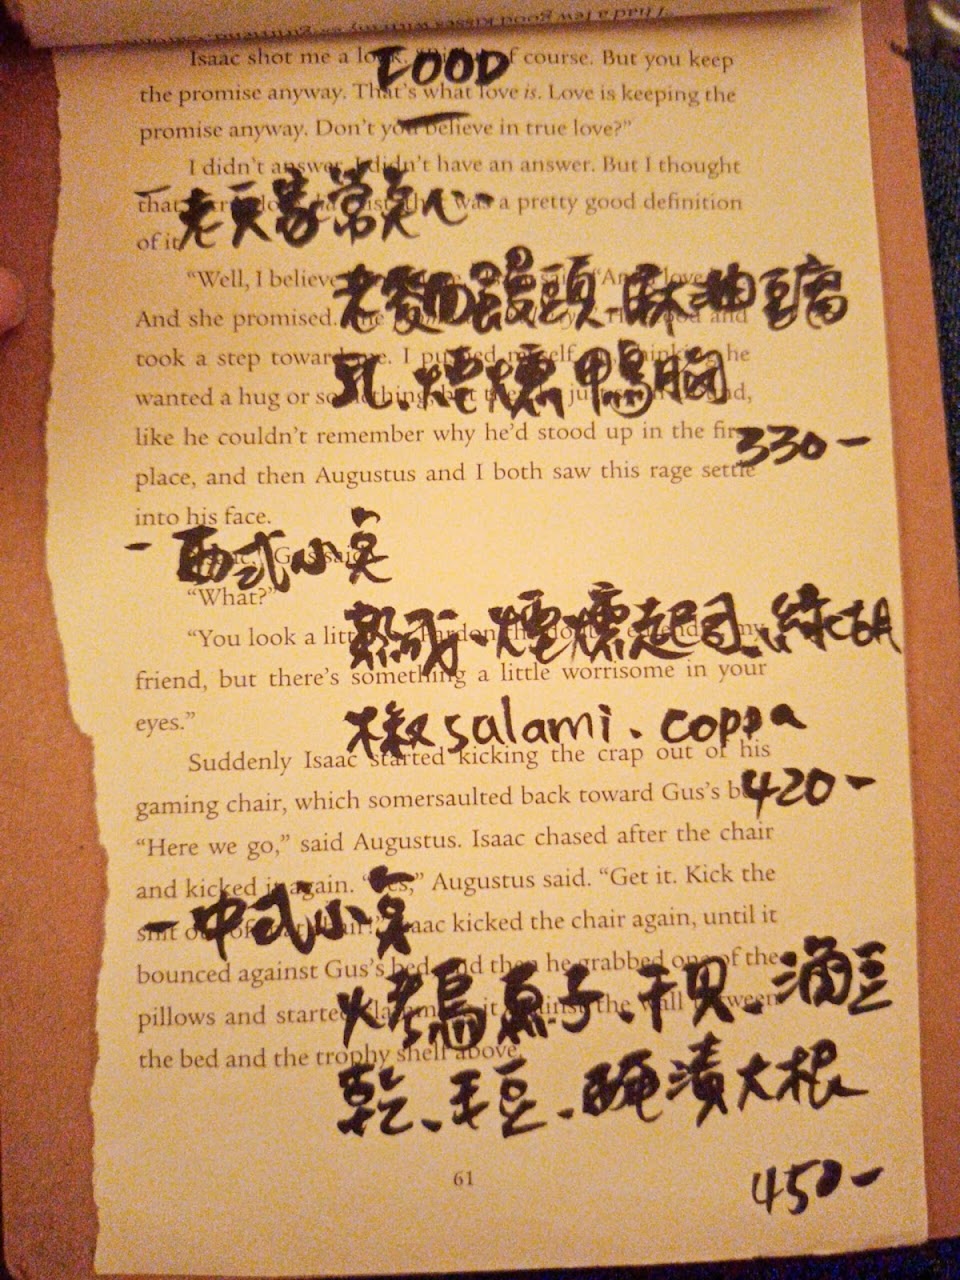 FOOD
Isaac shot me a look. of course. But you keep
the promise anyway. That's what love is. Love is keeping the
promise anyway. Don't you believe in true love?"
I didn't answer. I didn't have an answer. But I thought
that was a pretty good definition
of it.
一老天家常
"Well, I believe
老麵饅頭、麻油豆腐
And she promised.
took a step toward me. I pushed myself he
乳、煙燻鴨胸
wanted a hug or something, but
like he couldn't remember why he'd stood up in the first
330-
place, and then Augustus and I both saw this rage settle
into his face.
- 西式小
Gus said.
"What?"
"You look a my
熟成、煙燻起司、綠胡
friend, but there's something a little worrisome in your
eyes."
椒salami、coppa
Suddenly Isaac started kicking the crap out of his
gaming chair, which somersaulted back toward Gus's bed.
420-
"Here we go," said Augustus. Isaac chased after the chair
and kicked it again. "Yes," Augustus said. "Get it. Kick the
- 中式小
shit out of that chair!" Isaac kicked the chair again, until it
bounced against Gus's bed and then he grabbed one of the
火烤烏魚子、干貝、滷豆
pillows and started slamming it against the wall between
the bed and the trophy shelf above.
乾、毛豆、醃漬大根
61
450-